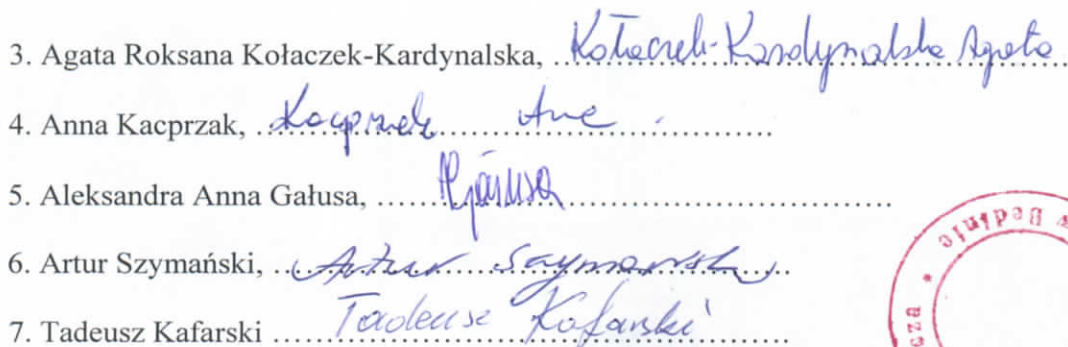 3. Agata Roksana Kołaczek-Kardynalska, Kołaczek-Kardynalska Agata
4. Anna Kacprzak, Kacprzak
5. Aleksandra Anna Gałusa,
6. Artur Szymański, Artur Szymański
7. Tadeusz Kafarski Tadeusz Kafarski
w Będlnie